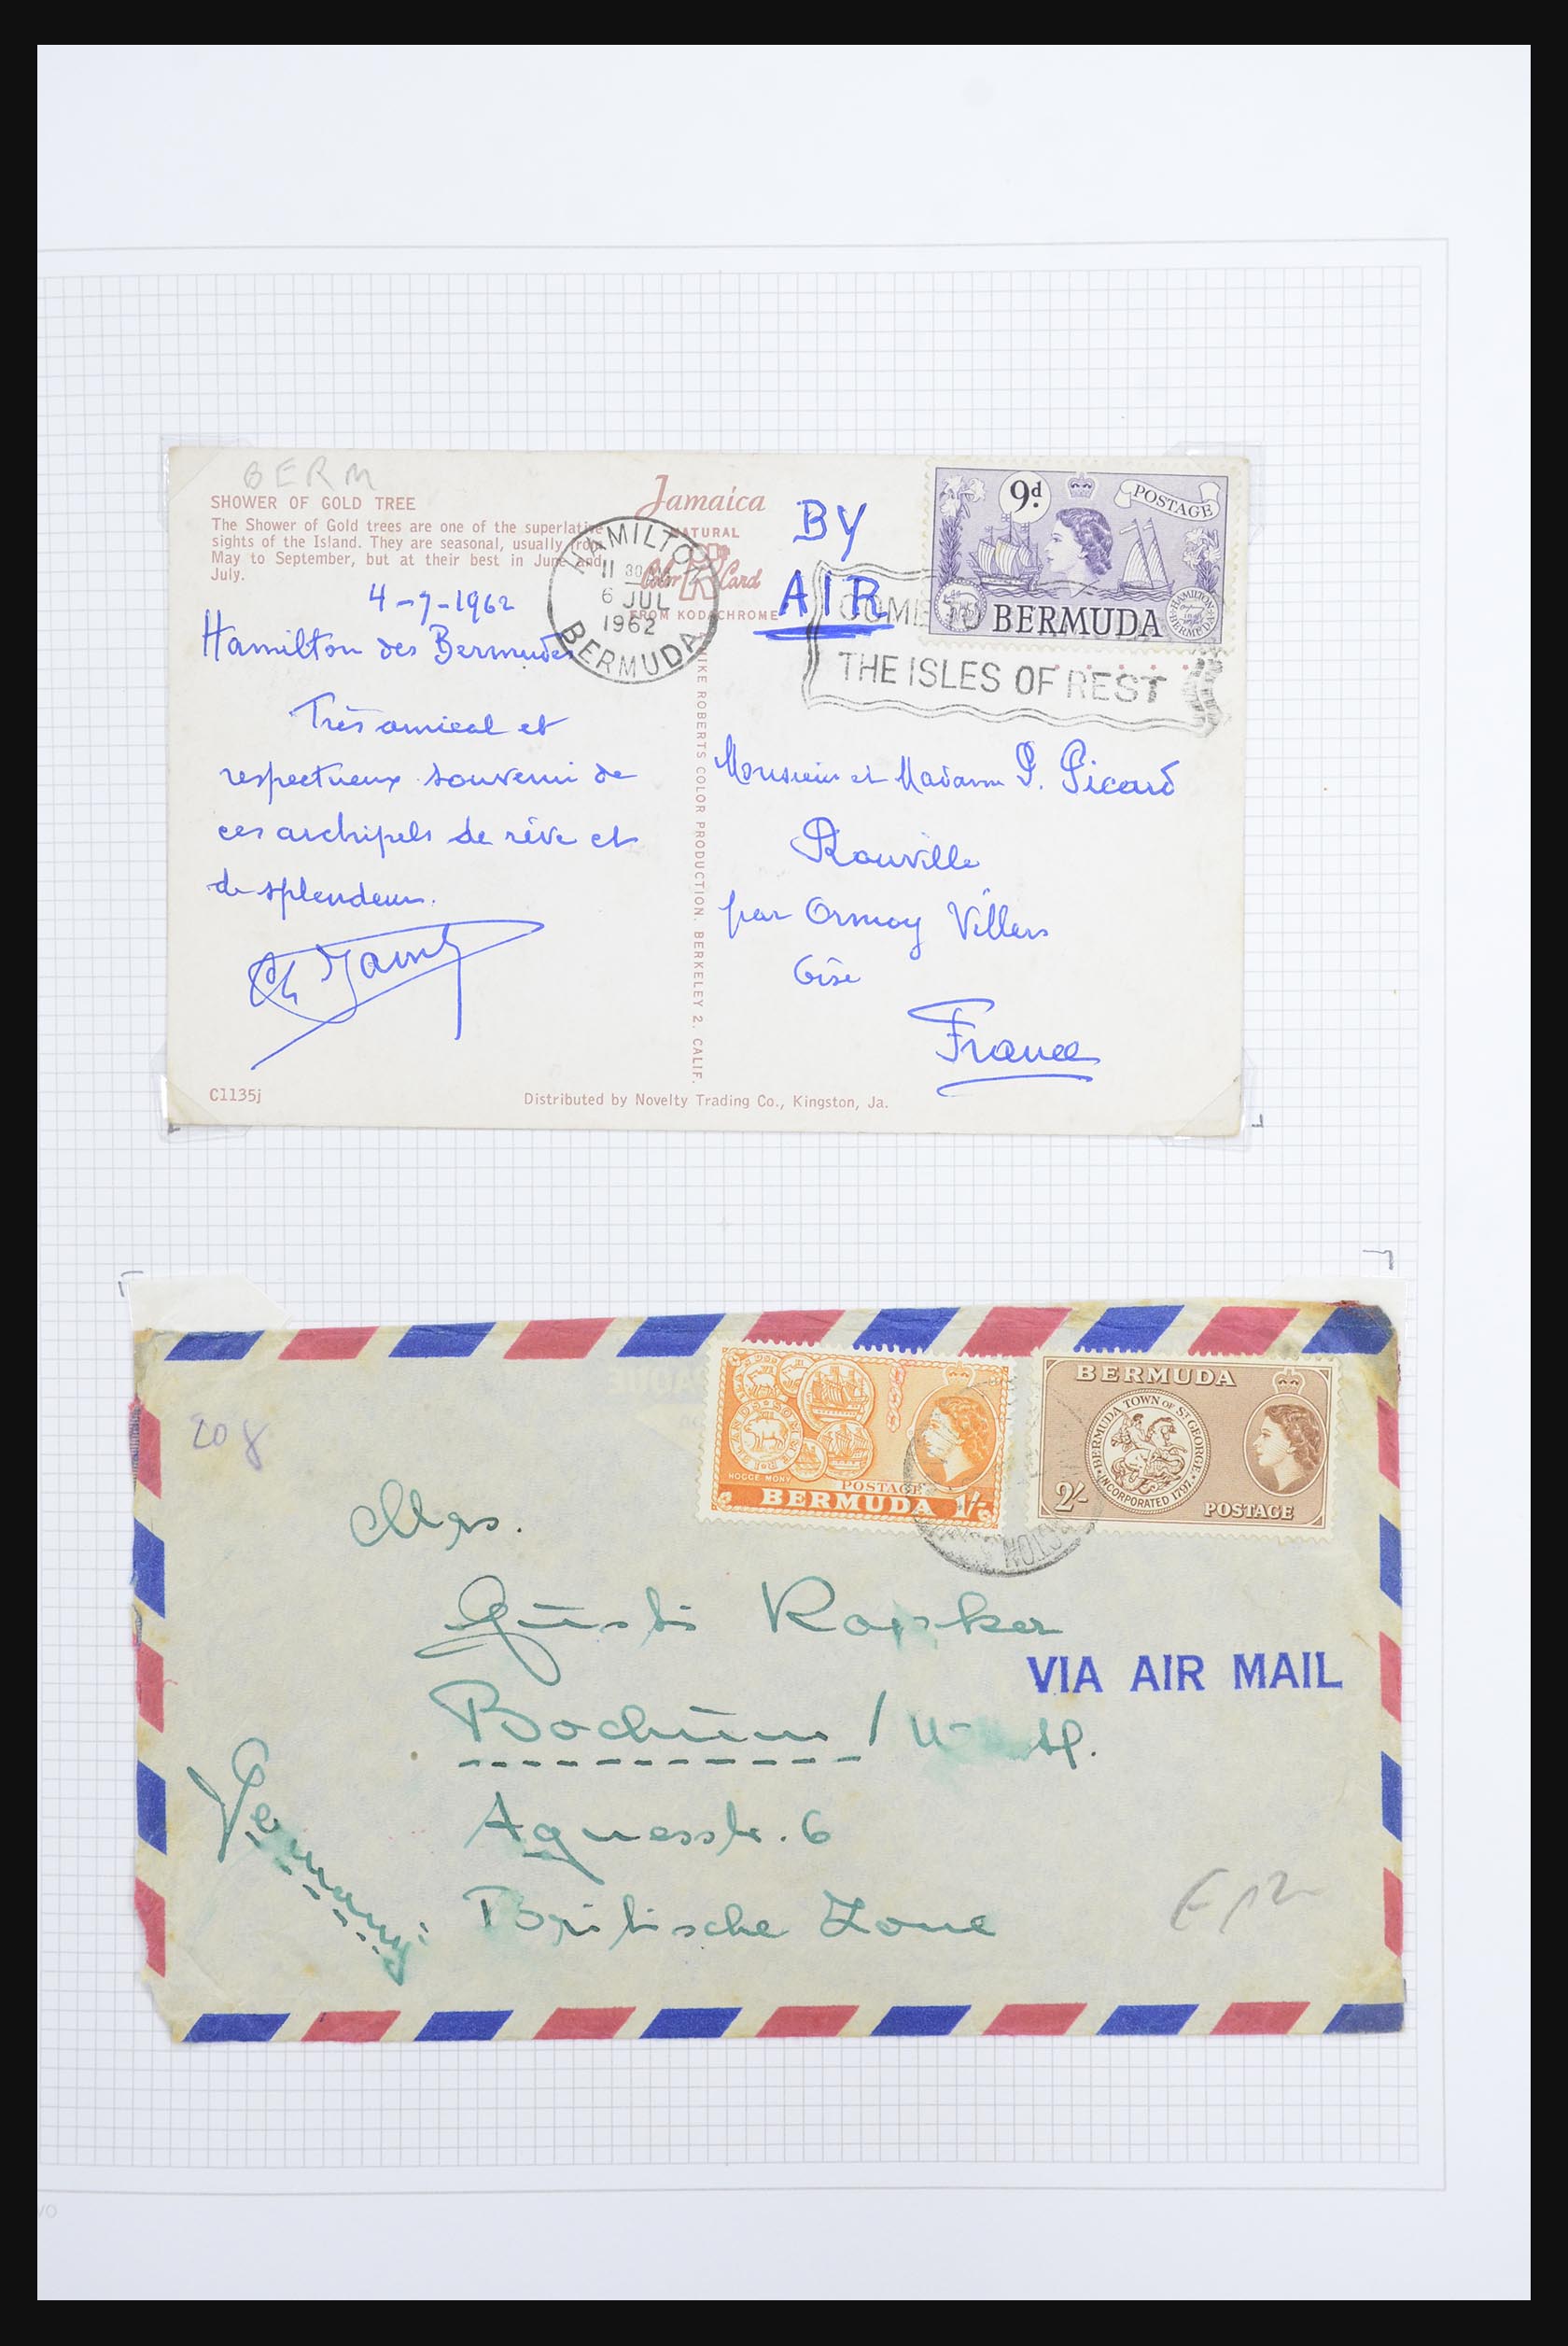 BERM
SHOWER OF GOLD TREE
The Shower of Gold trees are one of the superlative
sights of the Island. They are seasonal, usually from
May to September, but at their best in June and
July.
4-7-1962
Hamilton des Bermudes
Très amical et
respectueux souvenir de
ces archipels de rêve et
de splendeur.
C1135j
Jamaica
NATURAL
Color Card
FROM KODACHROME
MIKE ROBERTS COLOR PRODUCTION. BERKELEY 2. CALIF.
Distributed by Novelty Trading Co., Kingston, Ja.
HAMILTON
11 30 AM
6 JUL
1962
BERMUDA
BY
AIR
COME TO
THE ISLES OF REST
9d
POSTAGE
BERMUDA
HAMILTON BERMUDA
Monsieur et Madame P. Picard
Rouville
par Ormoy Villers
Oise
France
HOGGE MONY
POSTAGE
BERMUDA 1/-
BERMUDA
BERMUDA TOWN OF ST GEORGE
INCORPORATED 1797
2/-
POSTAGE
208
Mrs.
Gusti Rapsker
VIA AIR MAIL
Bochum /
Agnesstr. 6
Britische Zone
Germany